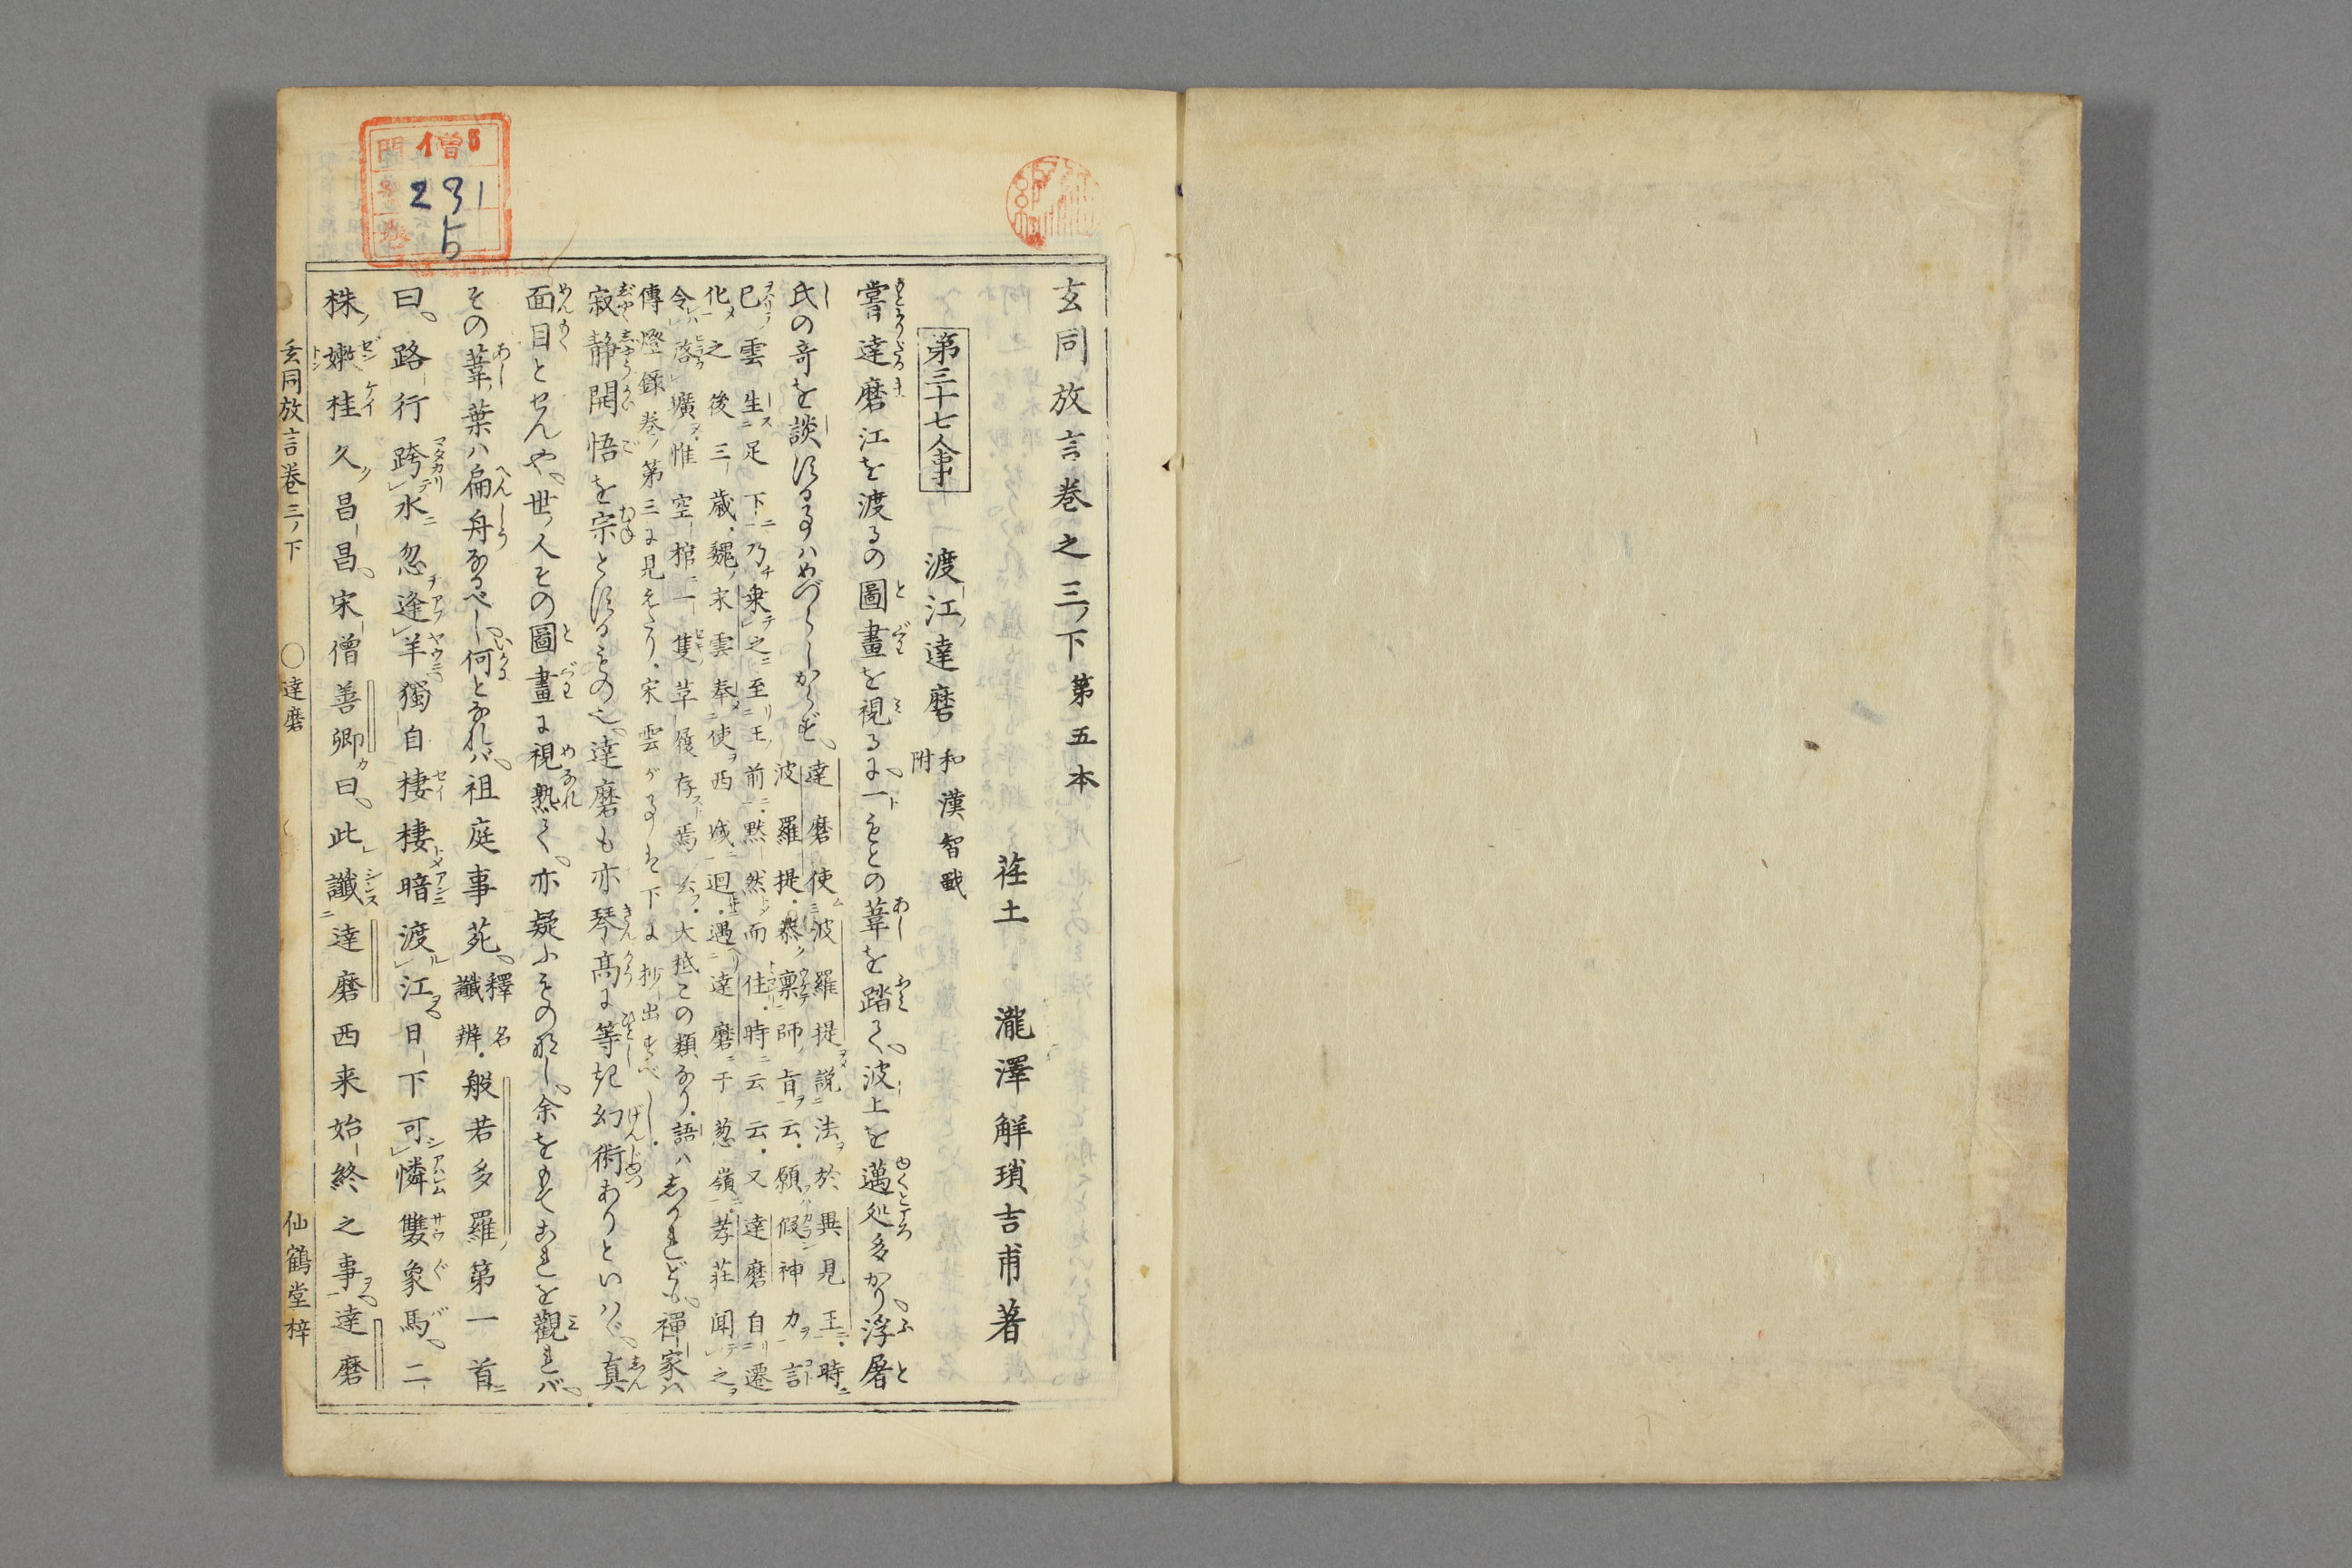 玄同放言巻之三ノ下 第五本
荏土 瀧澤解瑣吉甫著
第三十七人事 渡江ノ達磨 和漢智戰附
嘗達磨江を渡るの圖畫を視るに、一トもとの葦を踏て、波上を邁処多かり、浮屠
氏の奇を談ずる事ハめづらしからず、達磨使波羅提説法於異見王時
波羅提恭稟師旨云願假神力言
已雲生足下乃乗之至王前黙然而住時云云又達磨自遷
化之後三歳魏宋雲奉使西域迴遇達磨于葱嶺孝荘聞之
令啓壙惟空棺一隻草履存焉云云大抵この類なり語ハ
傳燈録巻ノ第三に見えたり宋雲が事は下に抄出すべし
しかれども、禪家ハ
寂静開悟を宗とするもの也、達磨も亦琴高に等しき幻術ありといハヾ、真
面目とせんや、世ノ人その圖畫に視熟て、亦疑ふもの那し、余をもてこれを觀れバ、
その葦葉ハ扁舟なるべし、何となれバ、祖庭事苑、釋名讖辨般若多羅ノ第一首ニ
曰、路行跨水忽逢羊獨自棲棲暗渡江日下可憐雙象馬、二
株嫩桂久昌昌、宋僧善卿曰、此讖達磨西来始終之事達磨
玄同放言巻三ノ下 ○達磨 仙鶴堂梓
231
5